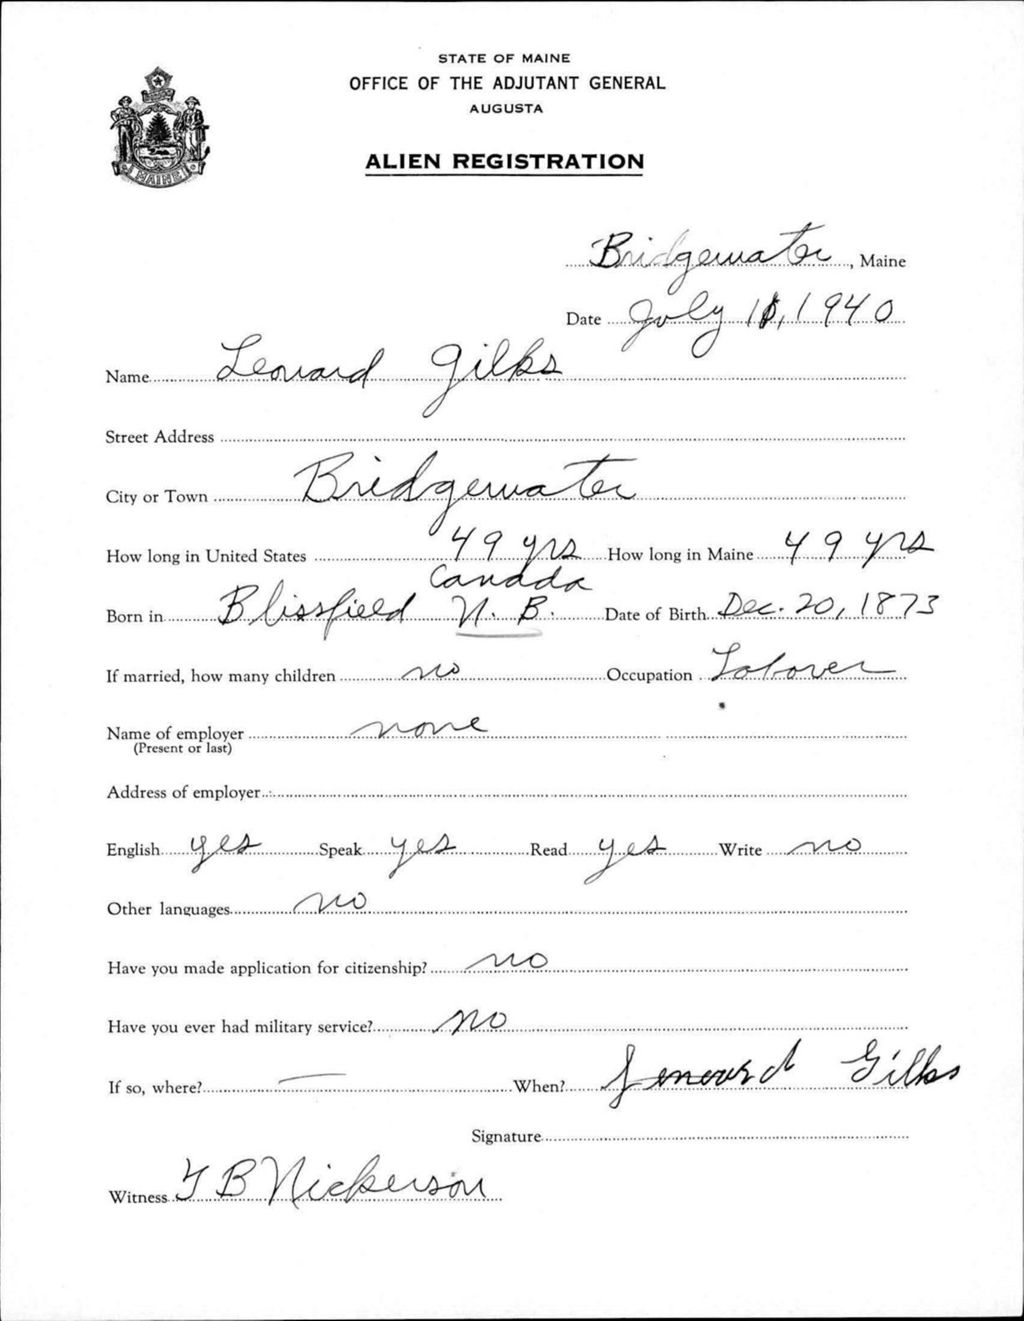 STATE OF MAINE
OFFICE OF THE ADJUTANT GENERAL
AUGUSTA
ALIEN REGISTRATION
MAINE
Bridgewater, Maine
Date July 1, 1940
Name Leonard Gilks
Street Address
City or Town Bridgewater
How long in United States 49 yrs How long in Maine 49 yrs
Canada
Born in Blissfield N. B. Date of Birth Dec. 20, 1873
If married, how many children no Occupation Laborer
Name of employer none
(Present or last)
Address of employer
English yes Speak yes Read yes Write no
Other languages no
Have you made application for citizenship? no
Have you ever had military service? no
If so, where? — When? Lenourd Gilks
Signature
Witness T B Nickerson